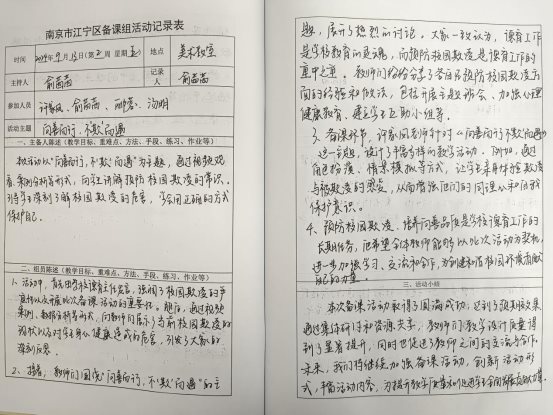 南京市江宁区备课组活动记录表
时间
2024年9月13日(第2周 星期五)
地点
美术教室
主持人
俞茜茜
记录人
俞茜茜
参加人员
许家凤、俞茜茜、
汤明
活动主题
向善而行,不"欺"而遇
一、主备人陈述(教学目标、重难点、方法、手段、练习、作业等)
本次活动以"向善而行,不"欺"而遇"为主题,通过视频观
看、案例分析等形式,向学生讲解预防校园欺凌的常识。
引导学生深刻了解校园欺凌的危害,学会用正确的方式
保护自己。
二、组员陈述(教学目标、重难点、方法、手段、练习、作业等)
1、活动中,首先由学校德育主任发言,强调了校园欺凌的严
重性以及开展此次备课活动的重要性。随后,通过视频
案例、数据分析等形式,向教师们展示了当前校园欺凌的
现状以及对学生身心健康造成的危害,引发了大家的
深刻反思。
2、接着,教师们围绕"向善而行,不"欺"而遇"的主
题,展开了热烈的讨论。大家一致认为,德育工作
是学校教育的灵魂,而预防校园欺凌是德育工作的
重中之重。教师们纷纷分享了各自在预防校园欺凌方
面的经验和做法,包括开展主题班会、加强心理
健康教育、建立学生互助小组等。
3、备课环节,许家凤老师针对"向善而行不欺而遇"
这一主题,设计了丰富多样的教学活动。例如,通过
角色扮演、情景模拟等方式,让学生亲身体验欺凌
与被欺凌的感受,从而增强他们的同理心和自我
保护意识。
4、预防校园欺凌、培养向善品质是学校德育工作的
长期任务,希望全体教师能够以此次活动为契机,
进一步加强学习、交流和合作,为创建和谐校园环境贡献
自己的力量。
三、活动小结
本次备课活动取得了圆满成功,达到了预期效果。
通过集体研讨和资源共享,教师们教学设计质量得
到了显著提升,同时也促进了教师之间的交流与合作。
未来,我们将继续加强备课活动,创新活动形
式,丰富活动内容,为提升教学质量和促进学生全面发展贡献力量。